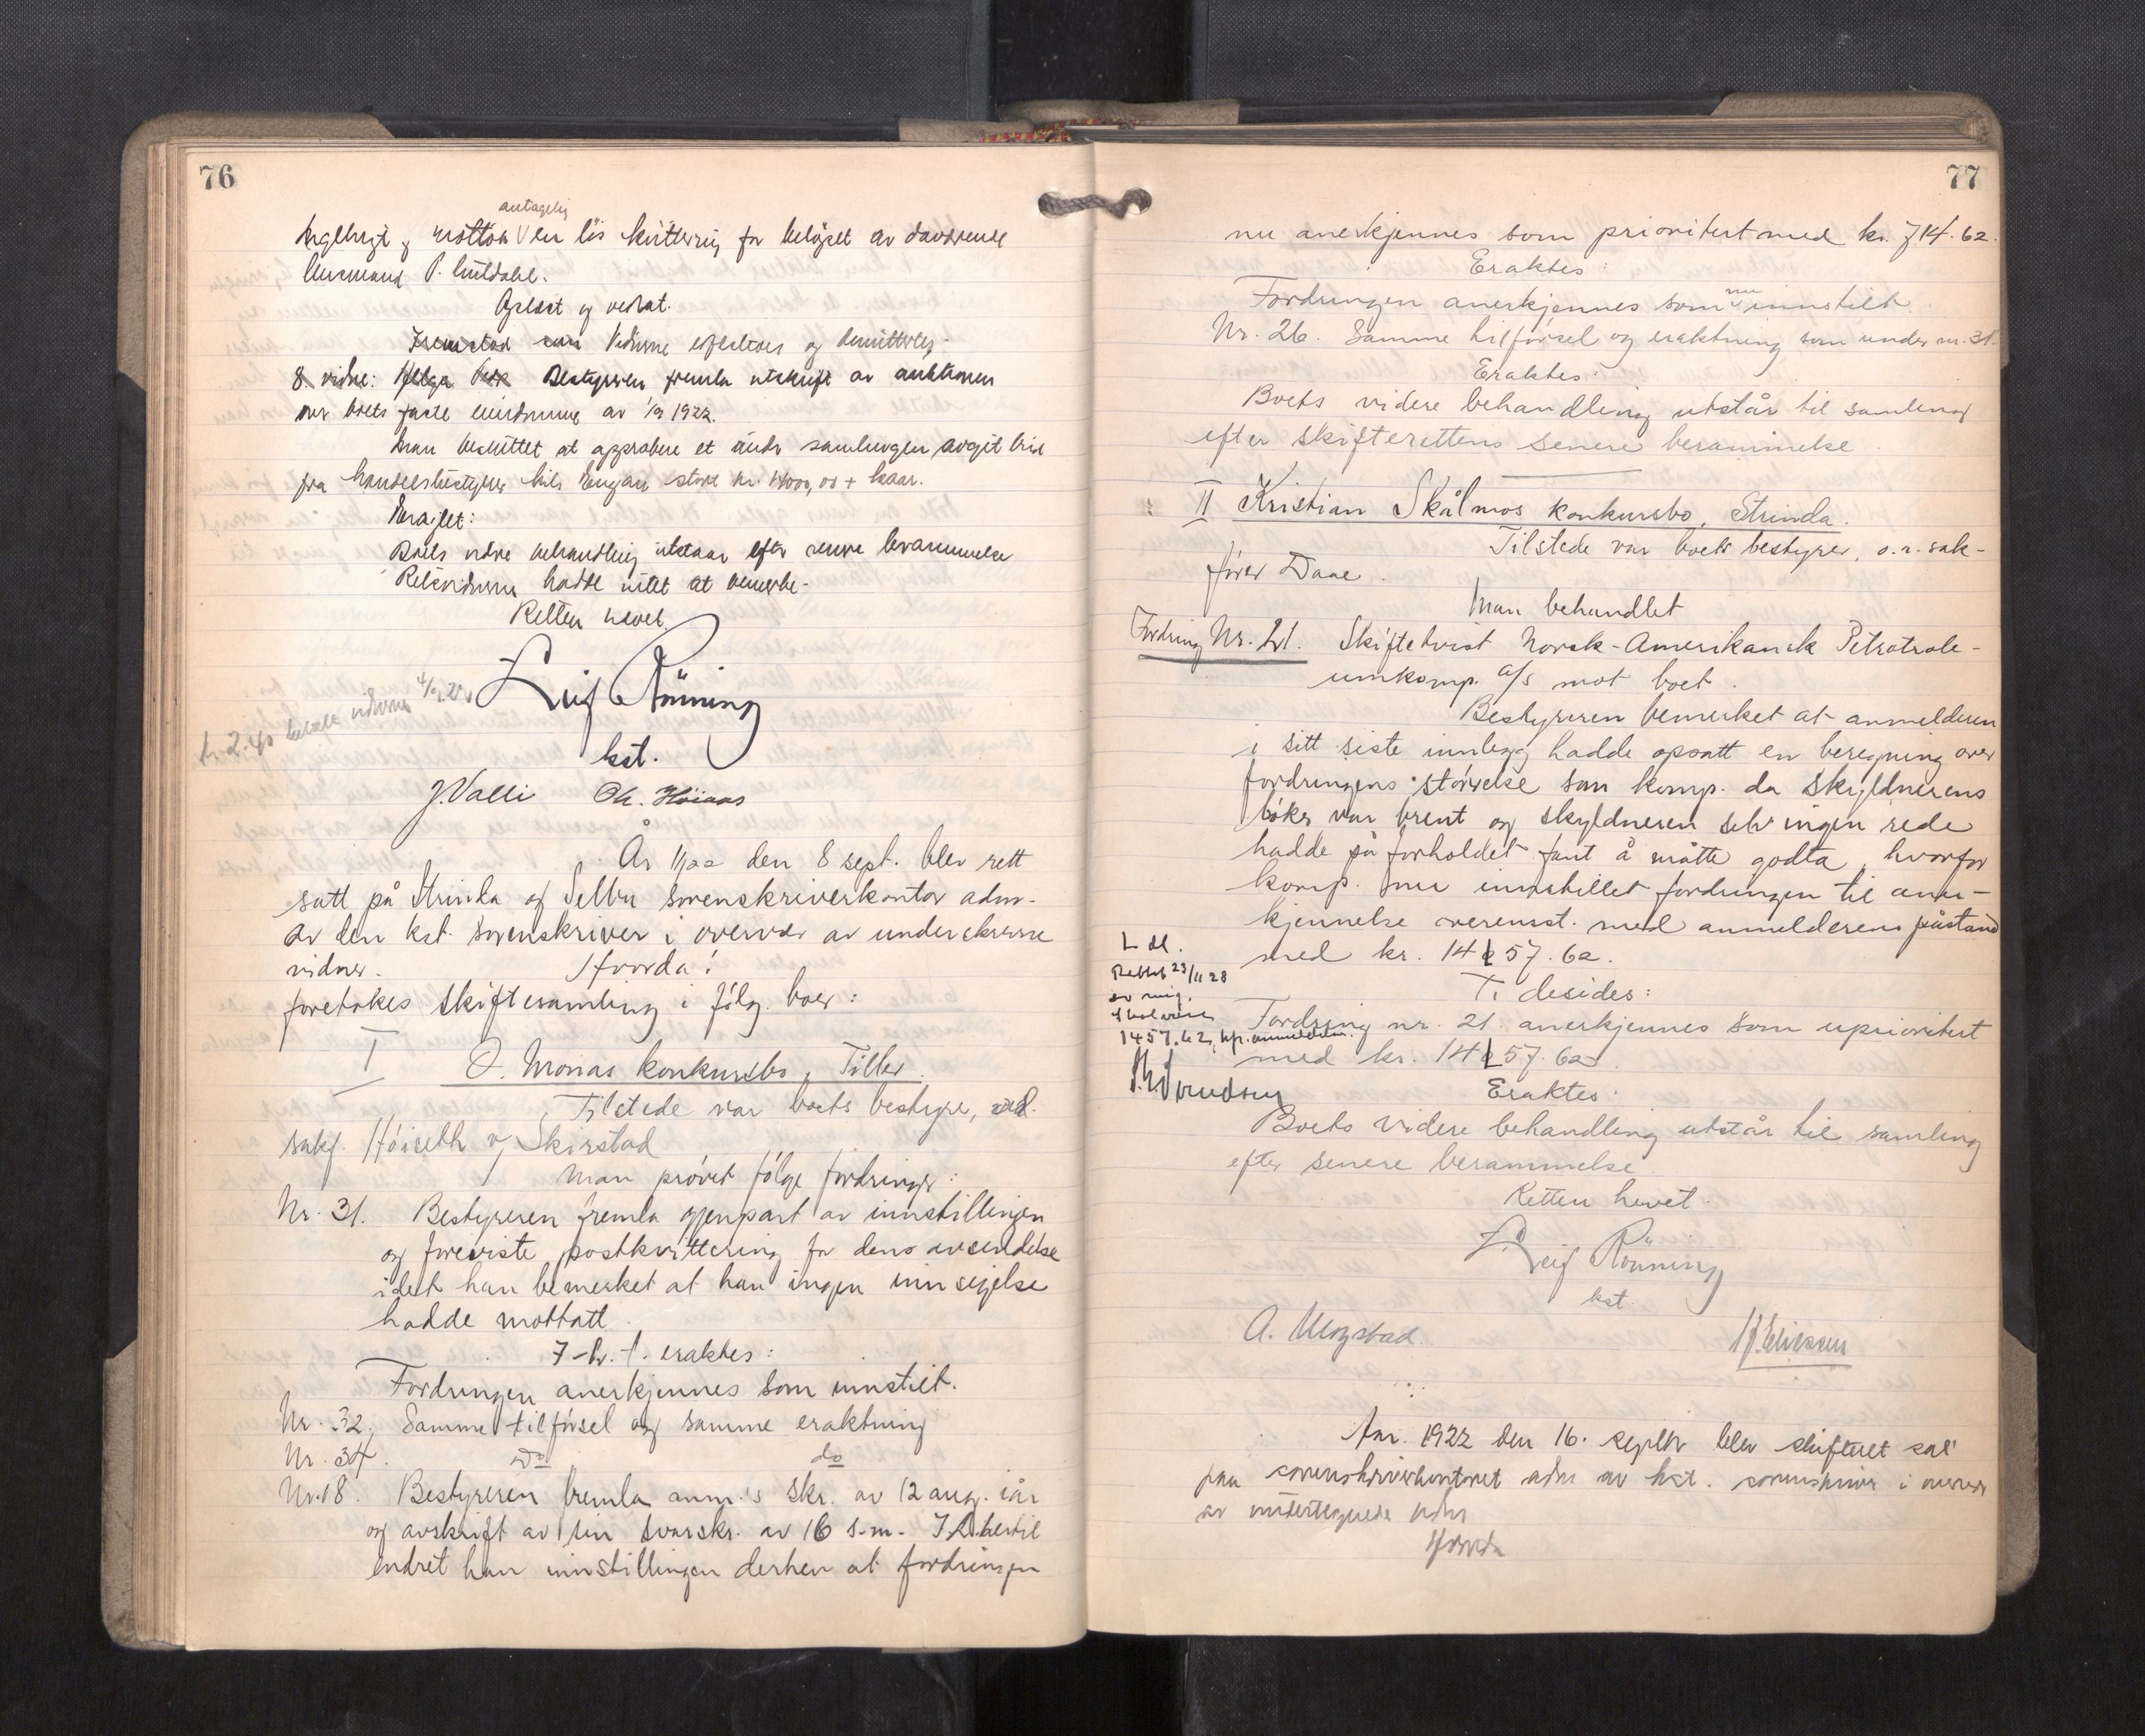 76
antagelig
og mottok V en løs kvittering for beløpet av daværende
P. Huldahl.
Oplest og vedtat.
Vidnerne edfestedes og demitteres.
8. vidne: Helga Bestyreren fremla utskrift av auktionen
over boets faste eiendomme av 1/9 1922.
Man besluttet at approbere et under samlingen avgit bud
fra handelsbestyrer Nils Engan stort kr. 14000,00 + kaar.
Eragtet:
Boets videre behandling utstaar efter senere berammelse
Retsvidnerne hadde intet at bemerke.
Retten hevet.
Leif Rönning
kst.
kr. 2.40 betalt vidnerne
J. Valli Ch. Höiaas
År 1922 den 8 sept. blev rett
satt på Strinda og Selbu sorenskriverkontor adm.
av den kst. sorenskriver i overvær av underskrevne
vidner. Hvorda!
foretokes skiftesamling i følg. boer:
I O. Moraas konkursbo, Tiller.
Tilstede var boets bestyrer,
sakf. Höiseth v/ Skirstad
Man prøvet følge fordringer:
Nr. 31. Bestyreren fremla gjenpart av innstillingen
og foreviste postkvittering for dens avsendelse
idet han bemerket at han ingen innsigelse
hadde mottatt.
eraktes:
Fordringen anerkjennes som innstilt.
Nr. 32. Samme tilførsel og samme eraktning
Nr. 34. Do do
Nr. 18. Bestyreren fremla anm.'s skr. av 12 aug. iår
og avskrift av sin svarskr. av 16 s.m. I h. hertil
endret han innstillingen derhen at fordringen
77
nu anerkjennes som prioritert med kr. 714.62.
Eraktes:
nu
Fordringen anerkjennes som V innstilt.
Nr. 26. Samme tilførsel og eraktning som under nr. 31.
Eraktes:
Boets videre behandling utstår til samling
efter skifterettens senere berammelse.
II Kristian Skålmos konkursbo, Strinda.
Tilstede var boets bestyrer, o.r. sak-
fører Daae.
Man behandlet
Fordring Nr. 21. Skiftetvist Norsk-Amerikansk Petrole-
umkomp. A/S mot boet.
Bestyreren bemerket at anmelderen
i sitt siste innlegg hadde opsatt en beregning over
fordringens størrelse som komp. da skyldnerens
bøker var brent og skyldneren selv ingen rede
hadde på forholdet fant å måtte godta, hvorfor
komp. nu innstillet fordringen til aner-
kjennelse overensst. med anmelderens påstand
med kr. 1457.62.
Ti desides:
Fordring nr. 21. anerkjennes som uprioritert
med kr. 1457.62.
Rettet 23/11 28
av mig.
1457.62, anmeldelsen.
Eraktes:
Boets videre behandling utstår til samling
efter senere berammelse.
Retten hevet.
Leif Rönning
kst.
A. Mogstad
Aar 1922 den 16. septbr blev skifteret sat
paa sorenskriverkontoret adm av kst. sorenskriver i overvær
av undertegnede vidner
Hvorda